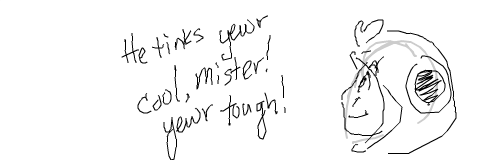 He tinks yewr
cool, mister!
yewr tough!